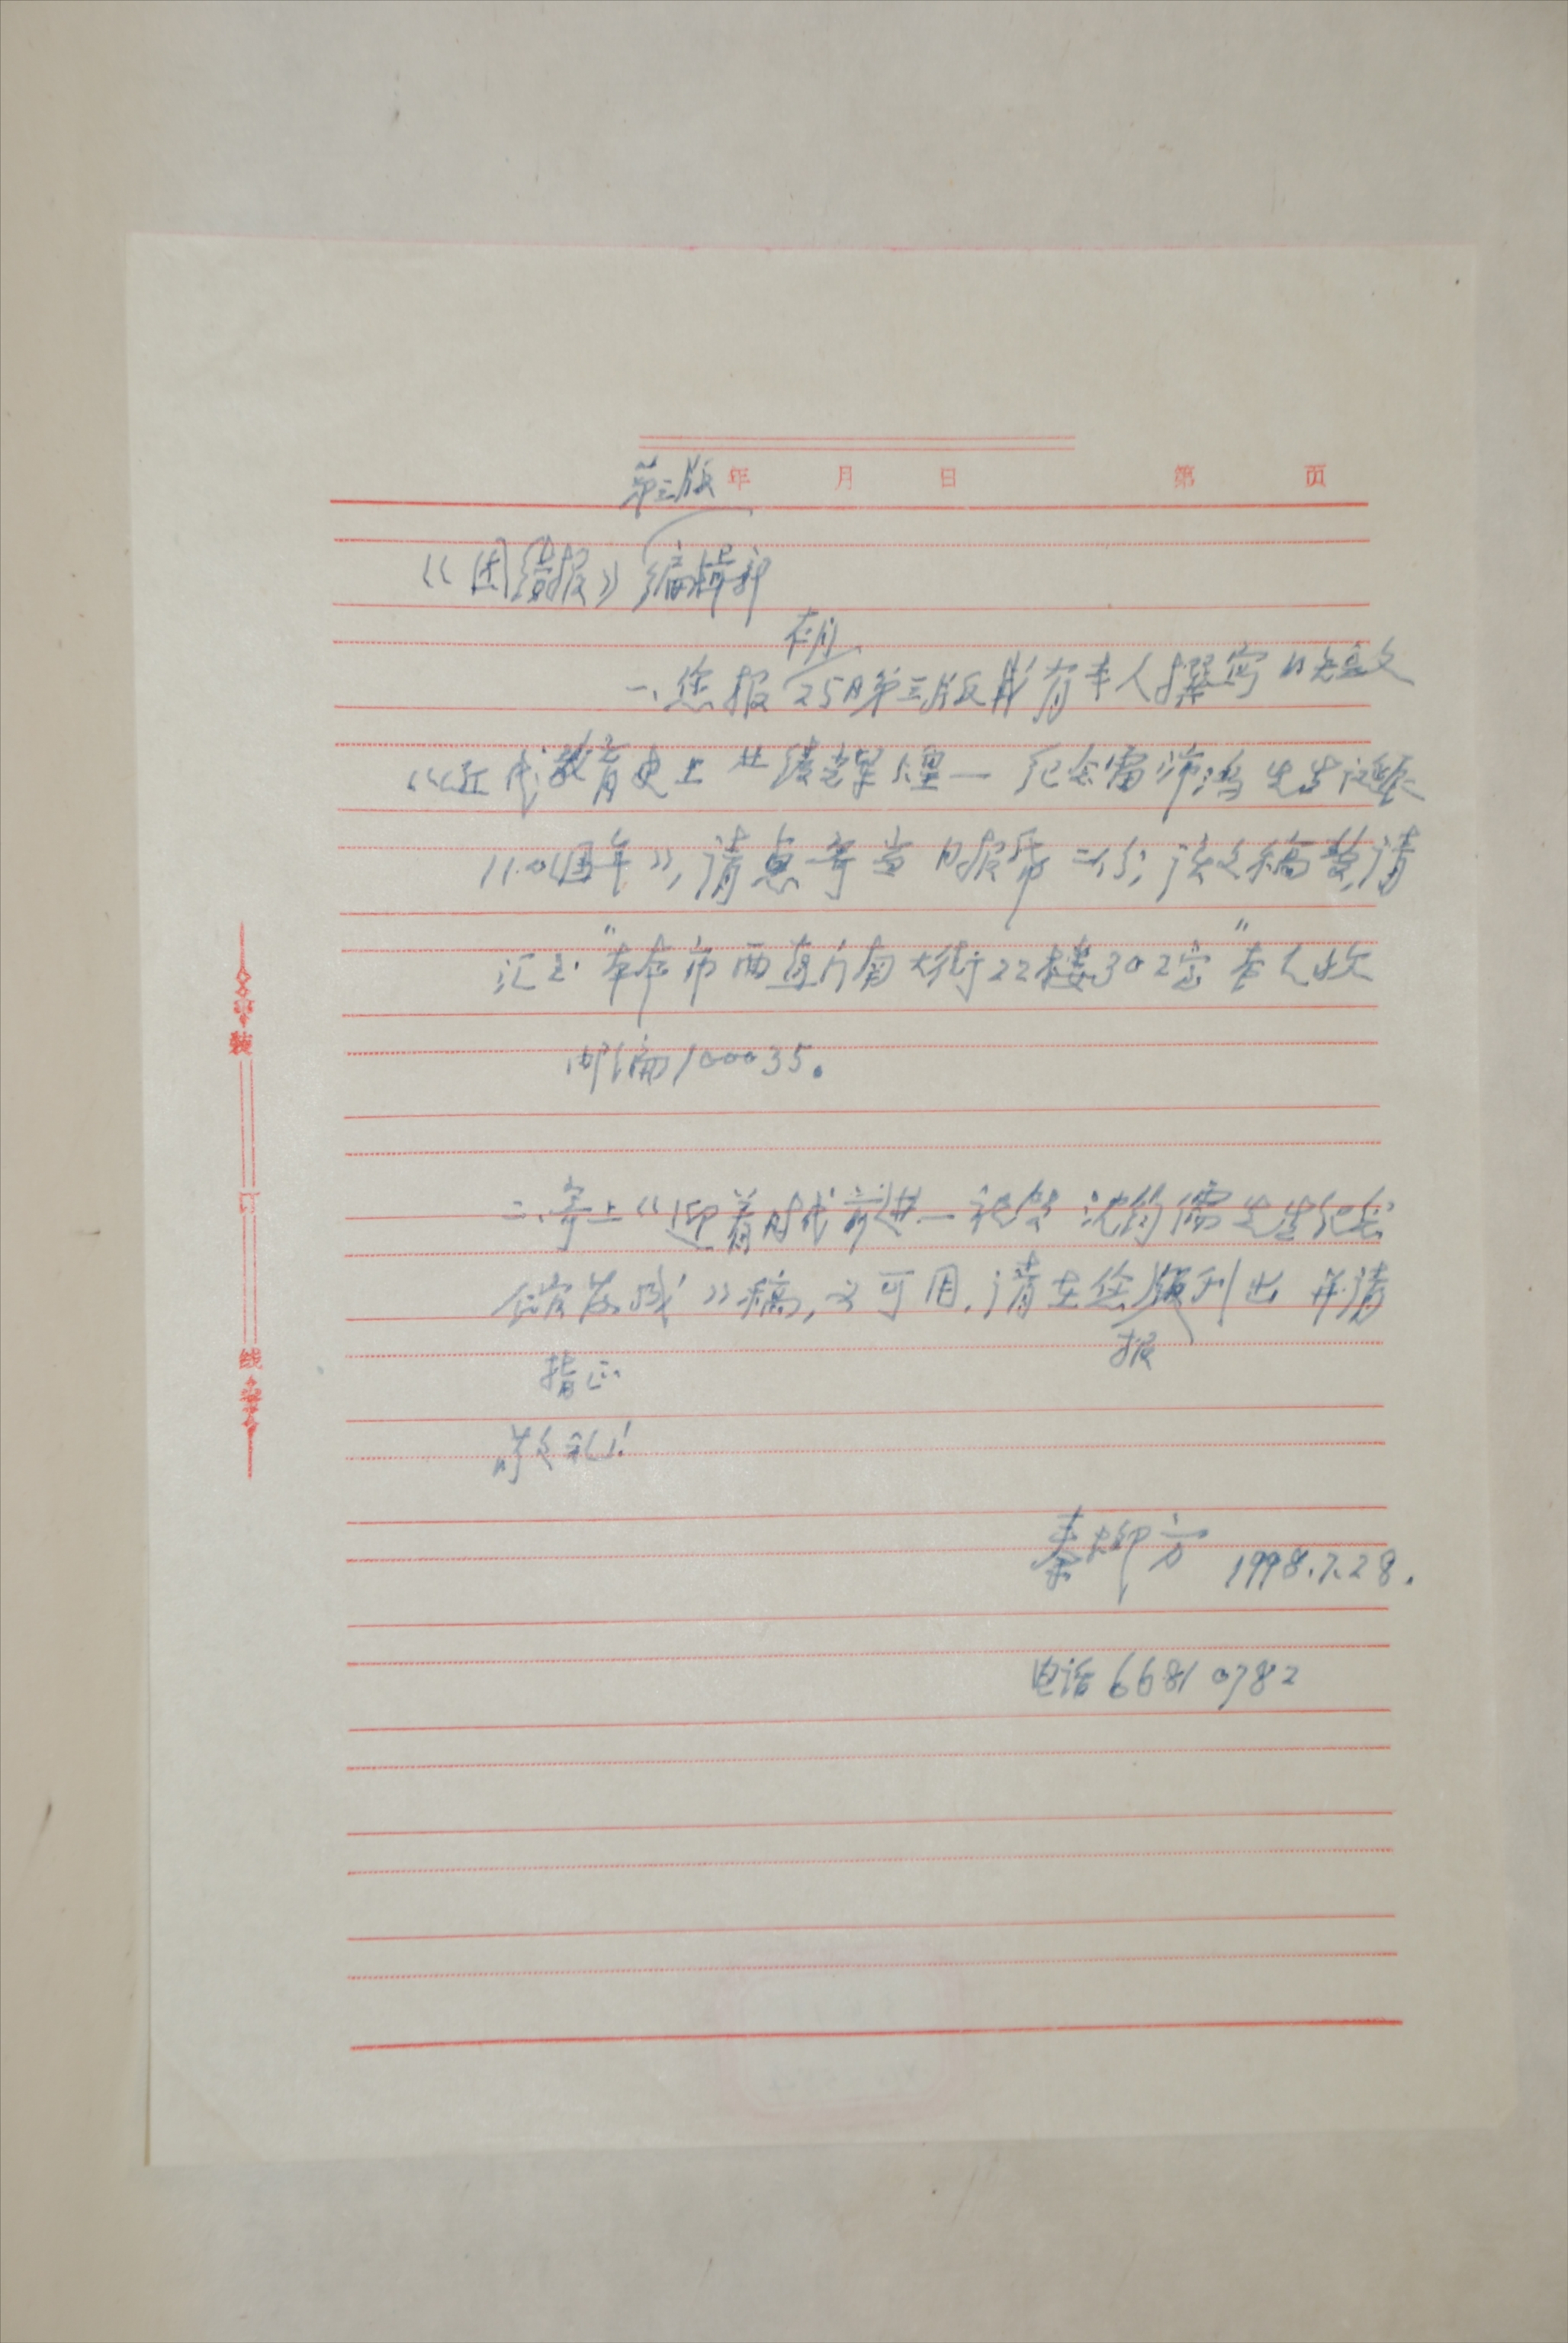 年 月 日 第 页
第三版
《团结报》编辑部
本月
一、您报25日第三版刊有本人撰写的短文
《近代教育史上业绩辉煌—纪念雷沛鸿先生诞辰
110周年》,请惠寄当日报纸二份,该文稿费请
汇至"本市西直门南大街22楼302室"本人收
邮编100035。
二、寄上《迎着时代前进—祝贺沈钧儒先生纪念
馆落成》稿,如可用,请在您版刊出 并请
报
指正
敬礼!
秦柳方 1998.7.28.
电话 66810782
装
订
线